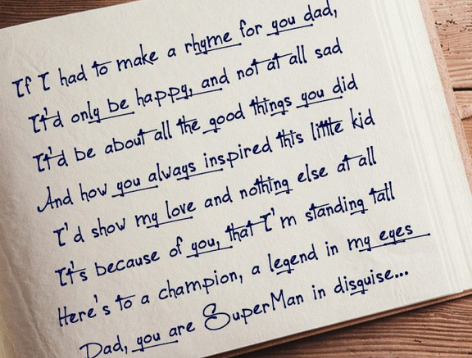 If I had to make a rhyme for you dad,
It'd only be happy, and not at all sad
It'd be about all the good things you did
And how you always inspired this little kid
I'd show my love and nothing else at all
It's because of you, that I'm standing tall
Here's to a champion, a legend in my eyes
Dad, you are SuperMan in disguise...